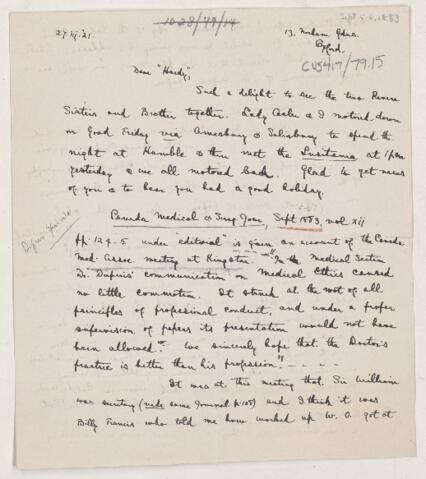 1028/79/14
Sept 5-6, 1883
27 IV 21.
13, Norham Gdns.
Oxford.
CUS417/79.15
Dear "Hardy",
Such a delight to see the two Revere
Sisters and Brother together. Lady Osler & I motored down
on Good Friday via Amesbury & Salisbury to spend the
night at Hamble & then met the Lusitania at 1 p.m.
yesterday & we all motored back. Glad to get news
of you & to hear you had a good holiday.
Canada Medical & Surg Jour, Sept 1883, vol xii
pp. 124-5 under "editorial" is given an account of the Canada
Med. Assoc. meeting at Kingston. "In the Medical Section
Dr. Dupuis' communication on Medical Ethics caused
no little commotion. It struck at the root of all
principles of professional conduct, and under a proper
supervision of papers its presentation would not have
been allowed. We sincerely hope that the Doctor's
practice is better than his profession."
It was at this meeting that Sir William
was secretary (vide same Journal p. 105) and I think it was
Billy Francis who told me how worked up W. O. got at